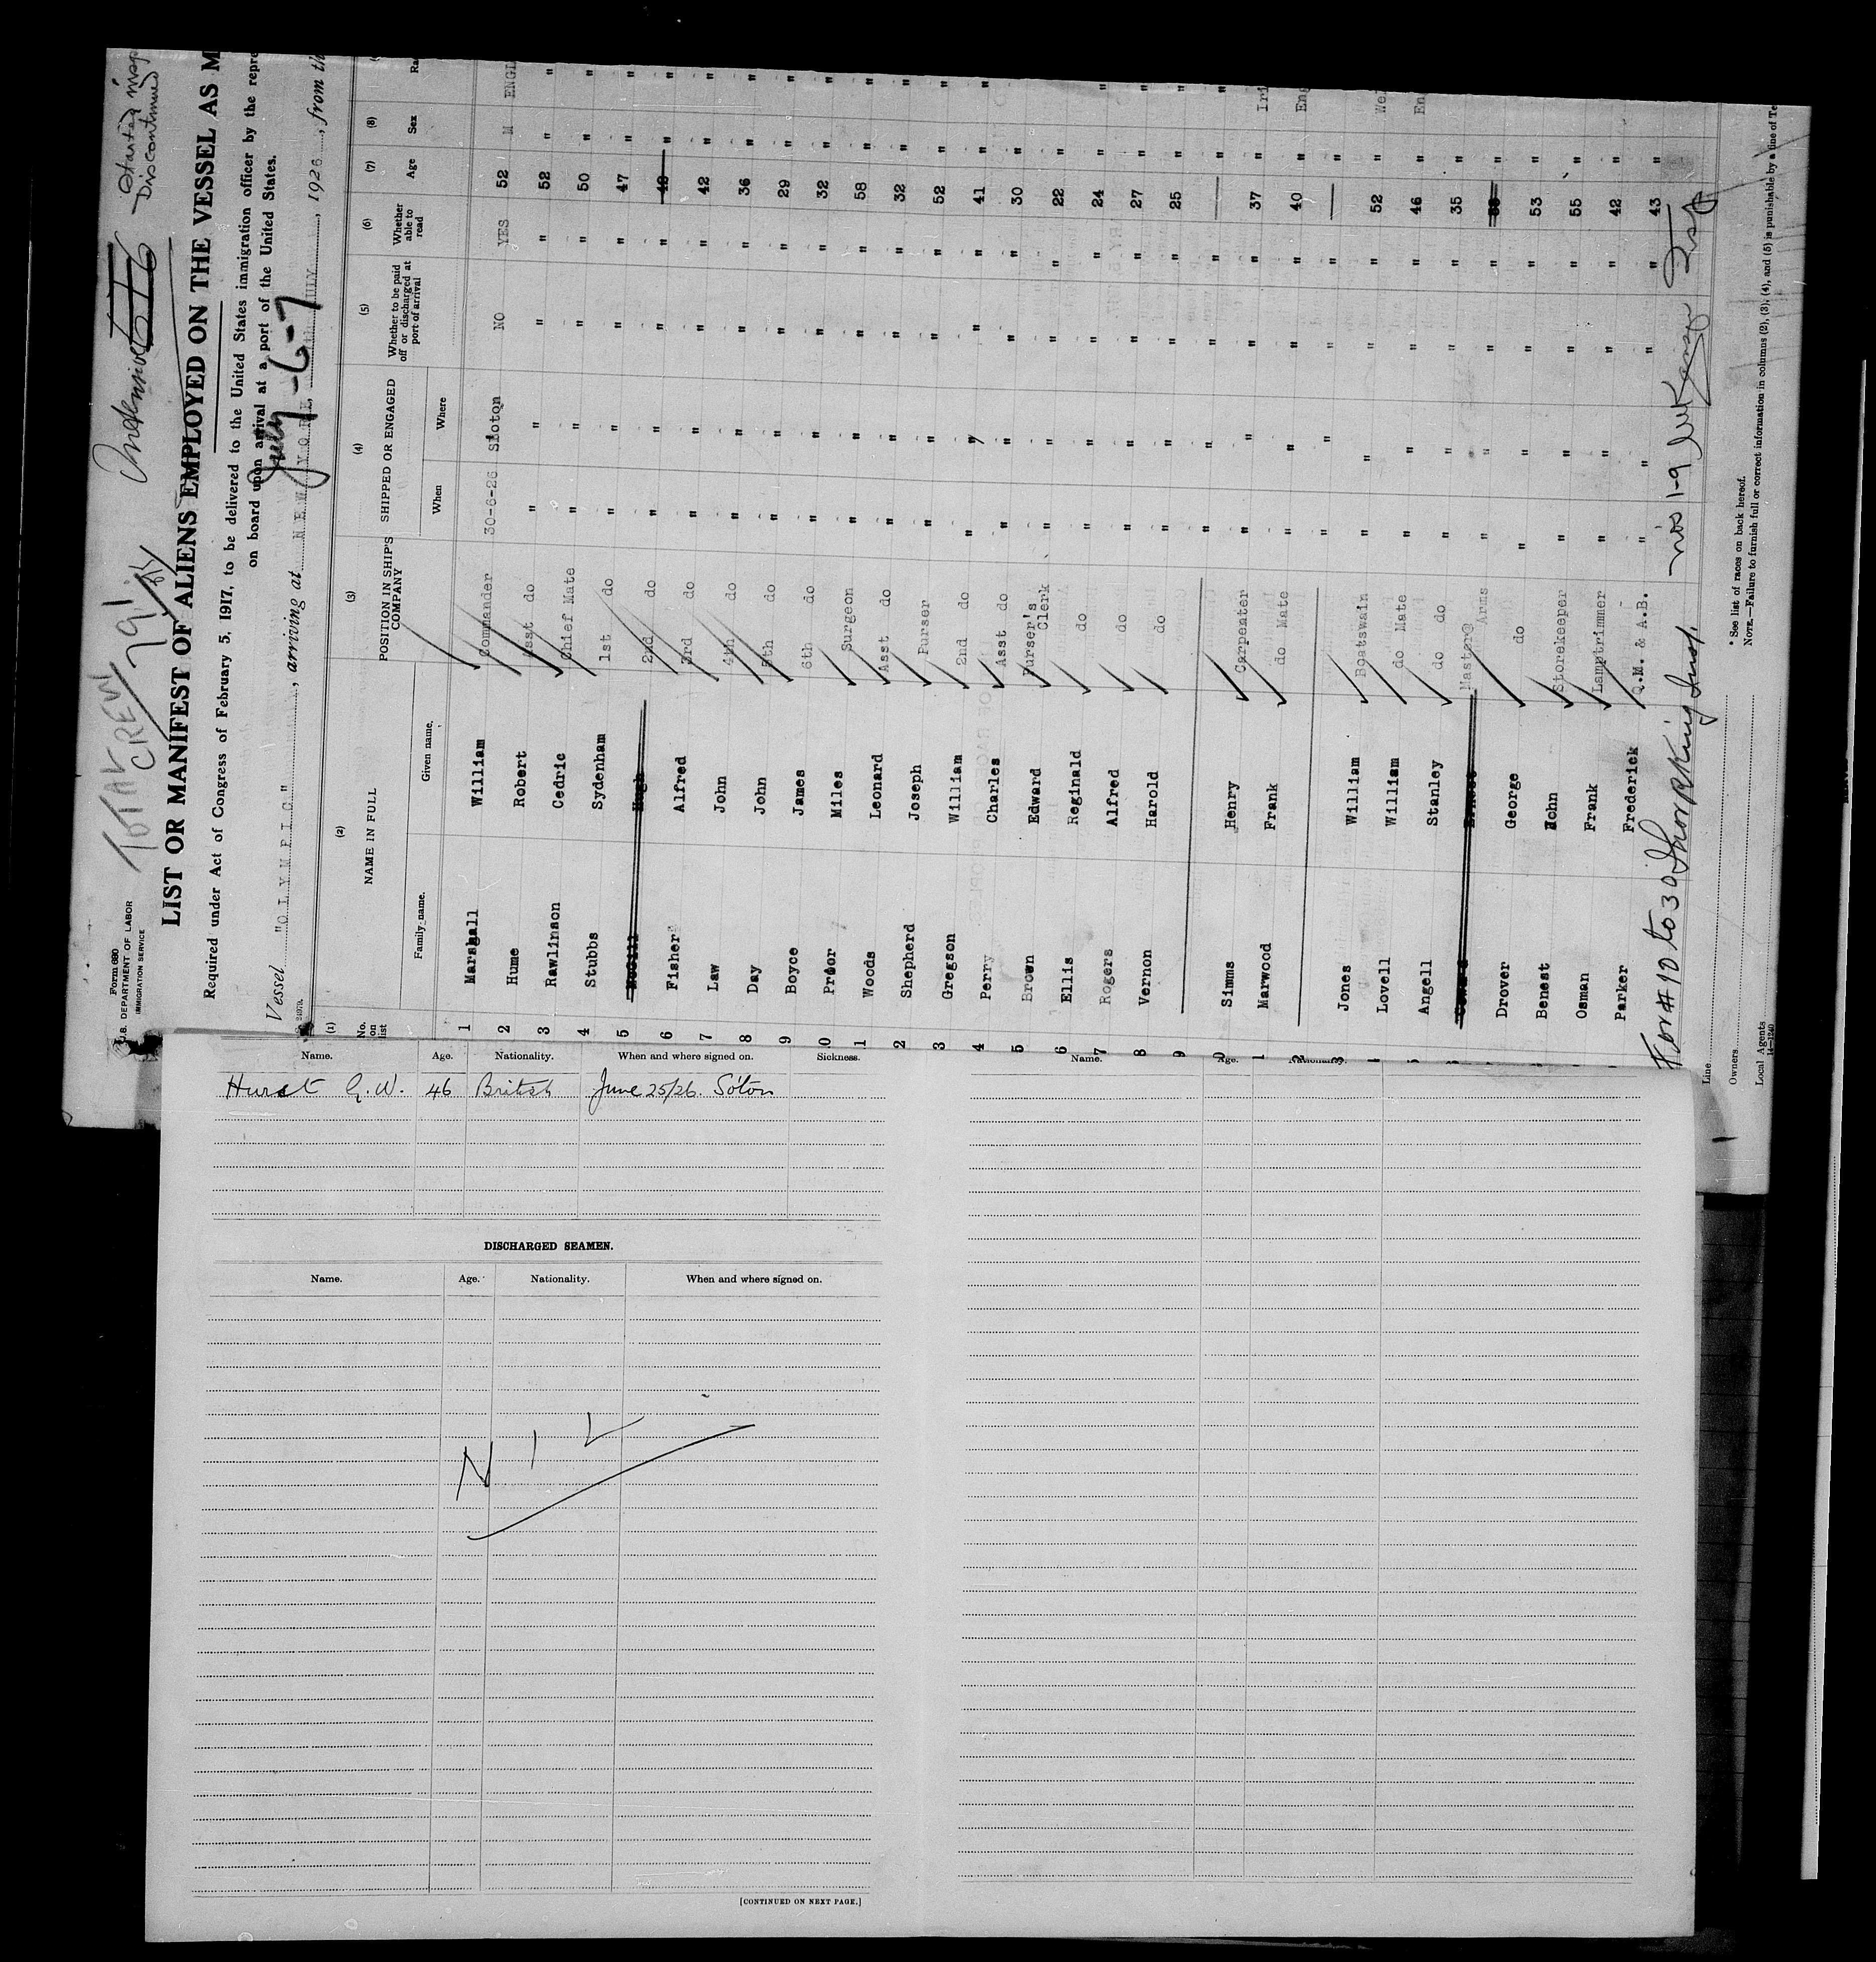 Form 680
U.S. DEPARTMENT OF LABOR
IMMIGRATION SERVICE
TOTAL CREW 791
Started insp
Discontinued
LIST OR MANIFEST OF ALIENS EMPLOYED ON THE VESSEL AS M
Required under Act of Congress of February 5, 1917, to be delivered to the United States immigration officer by the repre
on board upon arrival at a port of the United States.
July -6-7
Vessel "OLYMPIC", arriving at NEW YORK, JULY, 1926, from th
(1) (2) (3) (4) (5) (6) (7) (8)
No. on list NAME IN FULL POSITION IN SHIP'S COMPANY SHIPPED OR ENGAGED Whether to be paid off or discharged at port of arrival Whether able to read Age Sex Ra
Family name. Given name. When Where
1 Marshall William Commander 30-6-26 Stoton NO YES 52 M ENGL
2 Hume Robert Asst do " " " " 52 " "
3 Rawlinson Cedric Chief Mate " " " " 50 " "
4 Stubbs Sydenham 1st do " " " " 47 " "
5 McGill Hugh 2nd do " " " " 48 " "
6 Fisher Alfred 3rd do " " " " 42 " "
7 Law John 4th do " " " " 36 " "
8 Day John 5th do " " " " 29 " "
9 Boyce James 6th do " " " " 32 " "
0 Prior Miles Surgeon " " " " 58 " "
1 Woods Leonard Asst do " " " " 32 " "
2 Shepherd Joseph Purser " " " " 52 " "
3 Gregson William 2nd do " " " " 41 " "
4 Perry Charles Asst do " " " " 30 " "
5 Brown Edward Purser's Clerk " " " " 22 " "
6 Ellis Reginald do " " " " 24 " "
7 Rogers Alfred do " " " " 27 " "
8 Vernon Harold do " " " " 25 " "
9
0 Simms Henry Carpenter " " " " 37 " Iri
1 Marwood Frank do Mate " " " " 40 " Eng
2
3 Jones William Boatswain " " " " 52 " Wel
4 Lovell William do Mate " " " " 46 " En
5 Angell Stanley do do " " " " 35 "
Ernest Master@ Arms " " " " "
Drover George do " " " " 53 "
Benest John Storekeeper " " " " 55 "
Osman Frank Lamptrimmer " " " " 42 "
Parker Frederick Q.M. & A.B. " " " " 43 "
For #10 to 30
nos 1-9
Line
Owners
Local Agents
14-1240
* See list of races on back hereof.
NOTE.—Failure to furnish full or correct information in columns (2), (3), (4), and (5) is punishable by a fine of Te
Name. Age. Nationality. When and where signed on. Sickness.
Hurst G.W. 46 British June 25/26. So'ton
Name. Age. Nationality.
DISCHARGED SEAMEN.
Name. Age. Nationality. When and where signed on.
NIL
[CONTINUED ON NEXT PAGE.]